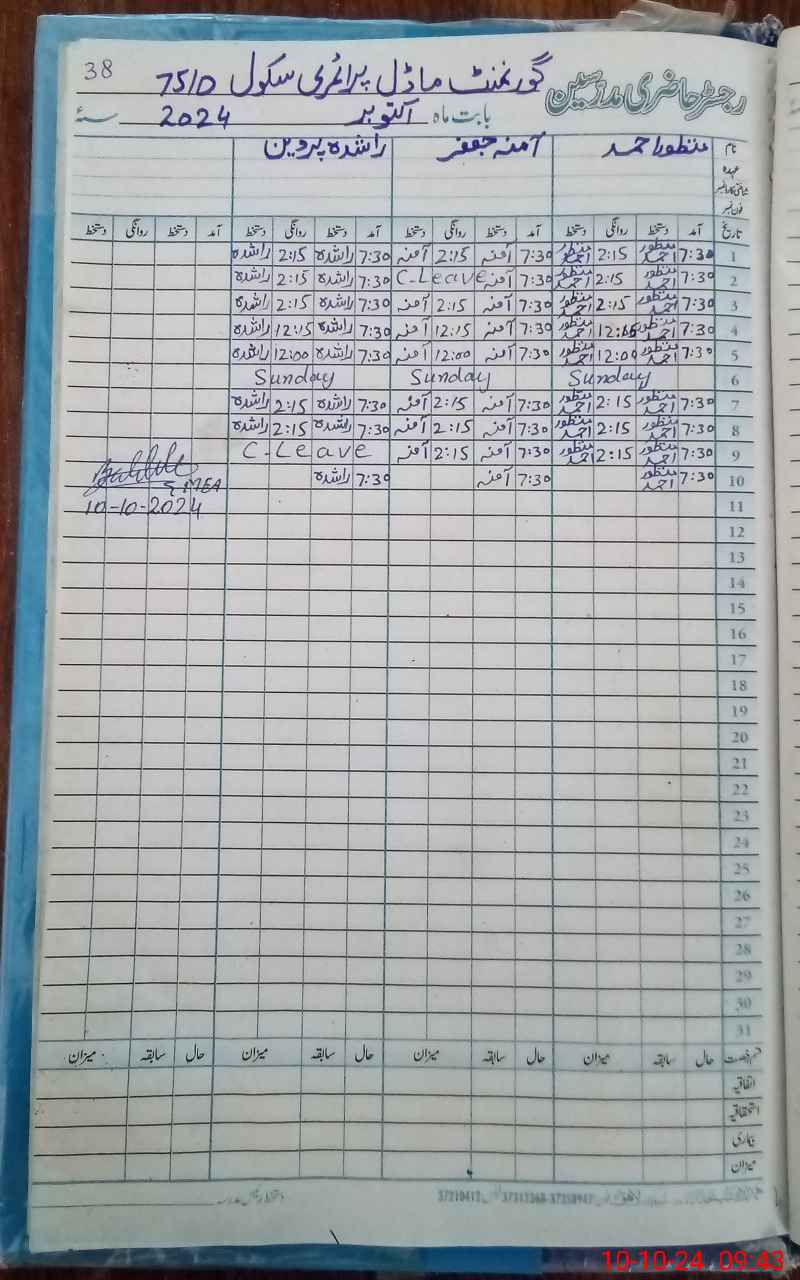 38
رجسٹر حاضری مدرسین
گورنمنٹ ماڈل پرائمری سکول 75/D
بابت ماہ اکتوبر 2024 سنہ
نام منظور احمد آمنہ جعفر راشدہ پروین
عہدہ
فون نمبر
تاریخ آمد دستخط روانگی دستخط آمد دستخط روانگی دستخط آمد دستخط روانگی دستخط آمد دستخط روانگی دستخط
1 7:30 منظور احمد 2:15 منظور احمد 7:30 آمنہ 2:15 آمنہ 7:30 راشدہ 2:15 راشدہ
2 7:30 منظور احمد 2:15 منظور احمد 7:30 آمنہ C-Leave 7:30 راشدہ 2:15 راشدہ
3 7:30 منظور احمد 2:15 منظور احمد 7:30 آمنہ 2:15 آمنہ 7:30 راشدہ 2:15 راشدہ
4 7:30 منظور احمد 12:15 منظور احمد 7:30 آمنہ 12:15 آمنہ 7:30 راشدہ 12:15 راشدہ
5 7:30 منظور احمد 12:00 منظور احمد 7:30 آمنہ 12:00 آمنہ 7:30 راشدہ 12:00 راشدہ
6 Sunday Sunday Sunday
7 7:30 منظور احمد 2:15 منظور احمد 7:30 آمنہ 2:15 آمنہ 7:30 راشدہ 2:15 راشدہ
8 7:30 منظور احمد 2:15 منظور احمد 7:30 آمنہ 2:15 آمنہ 7:30 راشدہ 2:15 راشدہ
9 7:30 منظور احمد 2:15 منظور احمد 7:30 آمنہ 2:15 آمنہ C-Leave
10 7:30 منظور احمد 7:30 آمنہ 7:30 راشدہ MEA
11 10-10-2024
12
13
14
15
16
17
18
19
20
21
22
23
24
25
26
27
28
29
30
31
قسم رخصت حال سابقہ میزان حال سابقہ میزان حال سابقہ میزان حال سابقہ میزان
اتفاقیہ
استحقاقیہ
بیماری
میزان
10-10-24 09:43